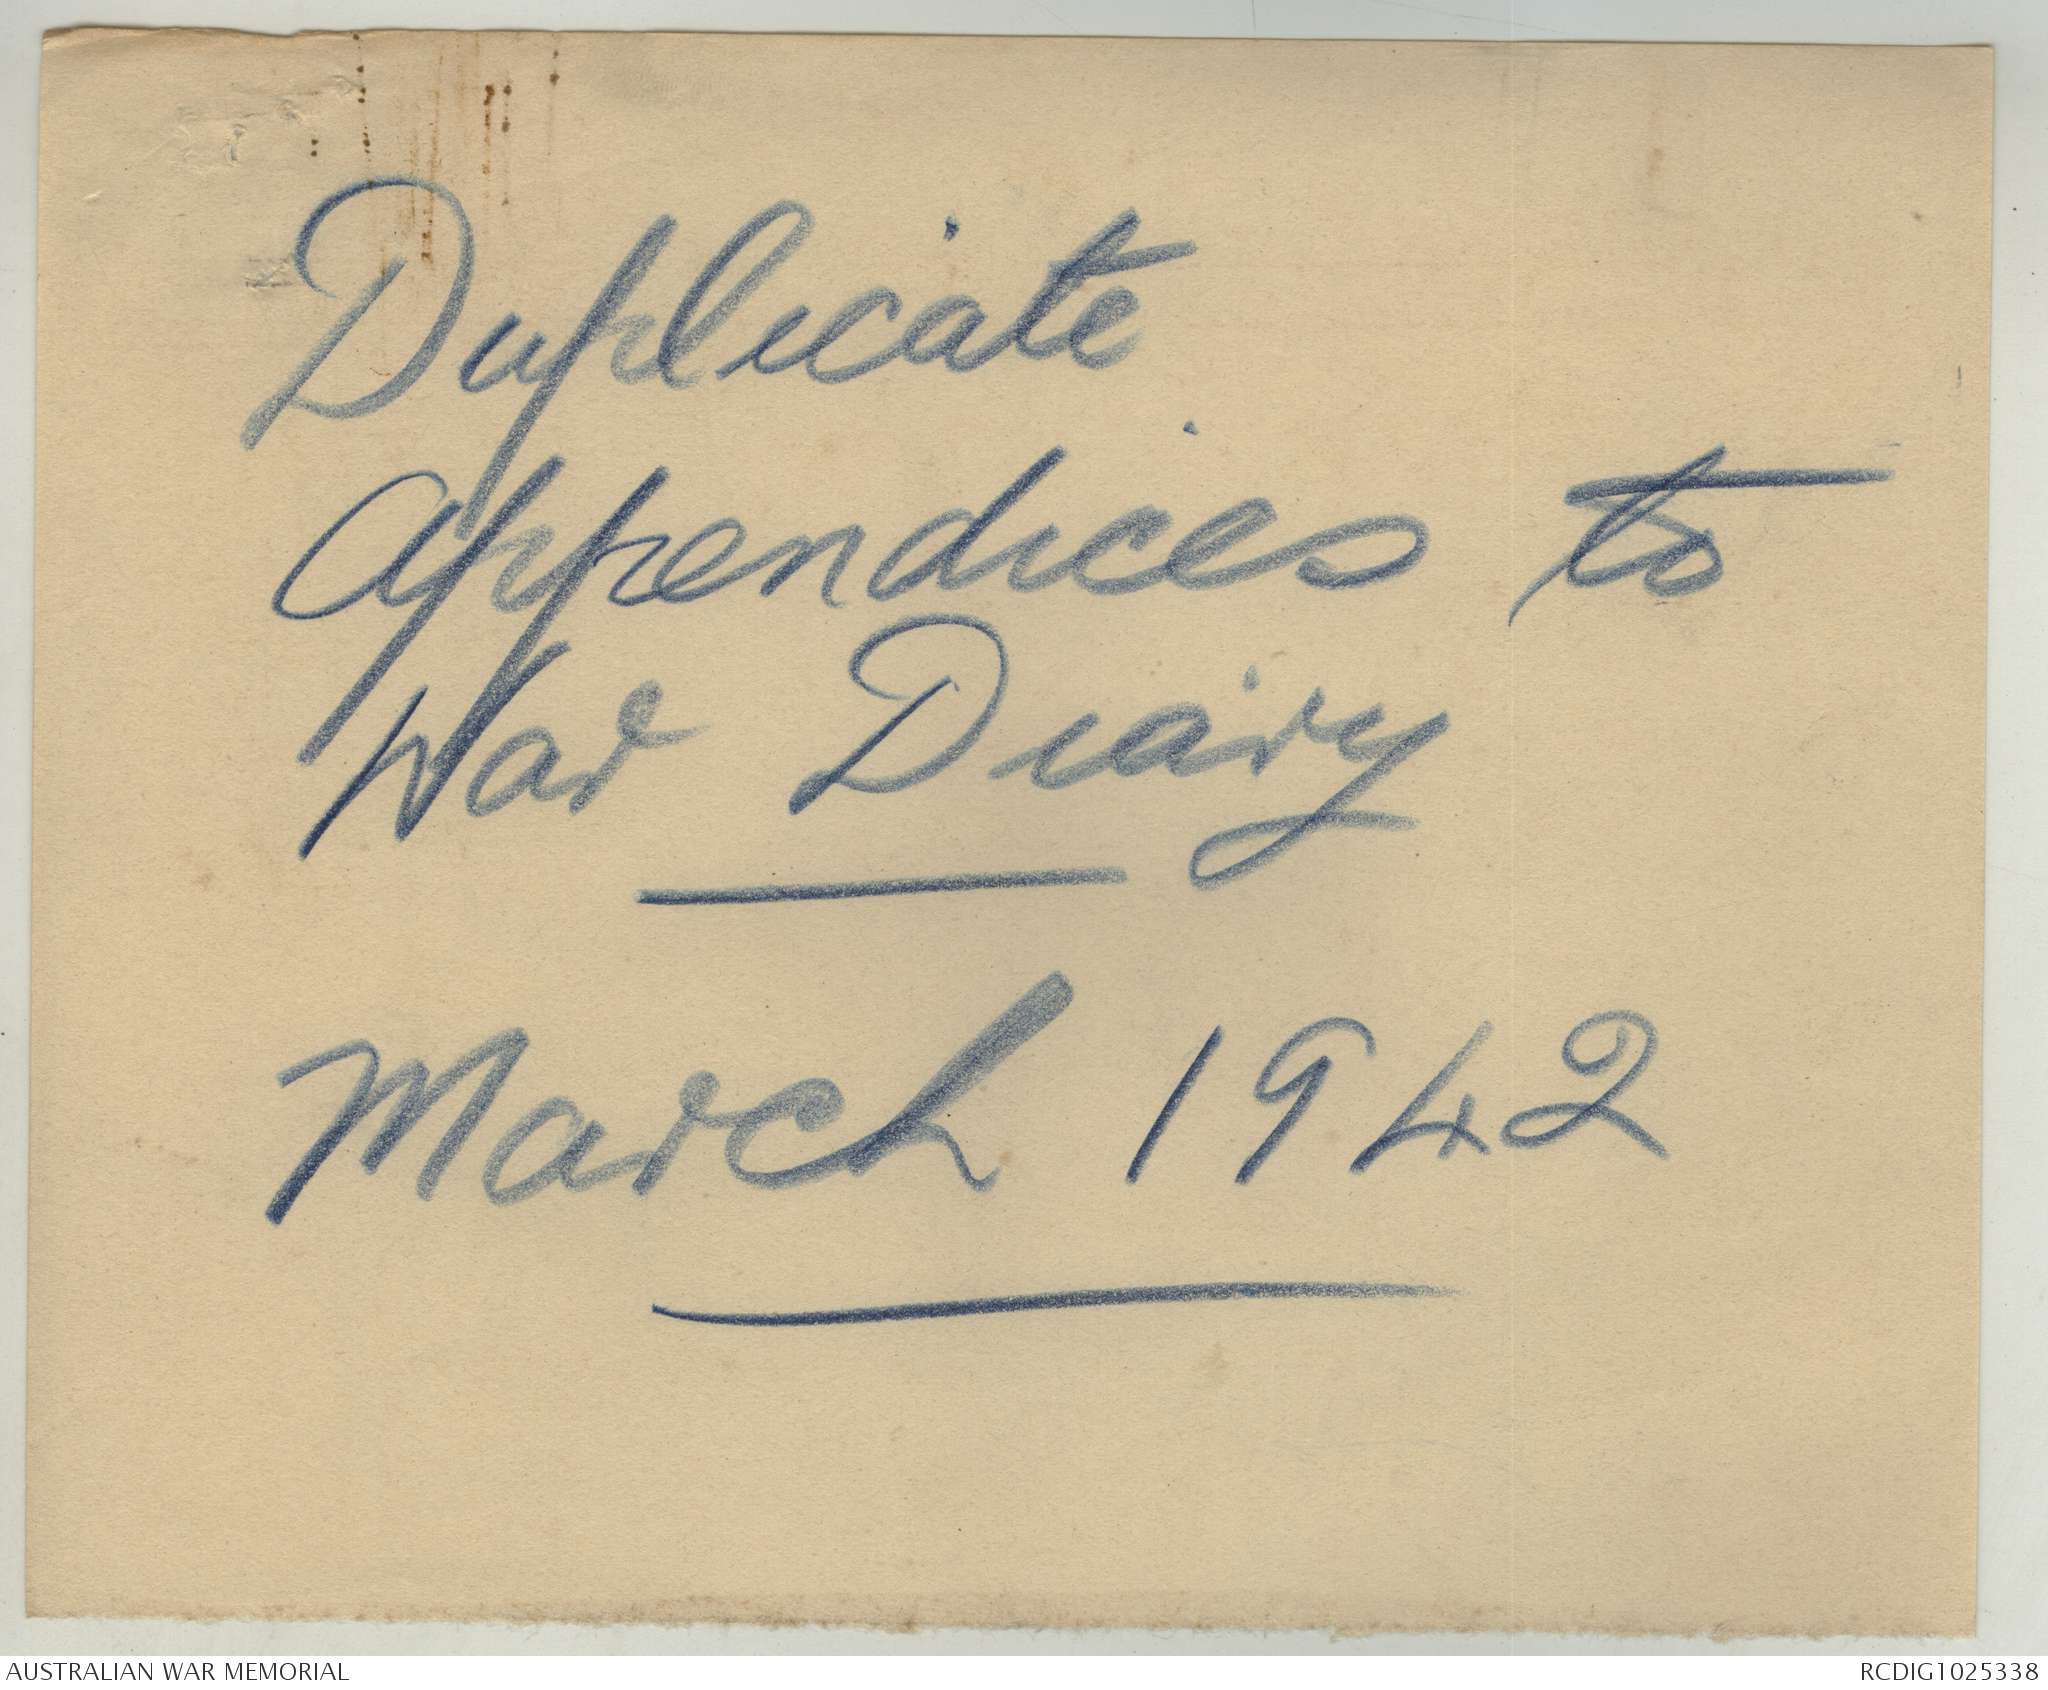 Duplicate
Appendices to
War Diary
March 1942
AUSTRALIAN WAR MEMORIAL
RCDIG1025338